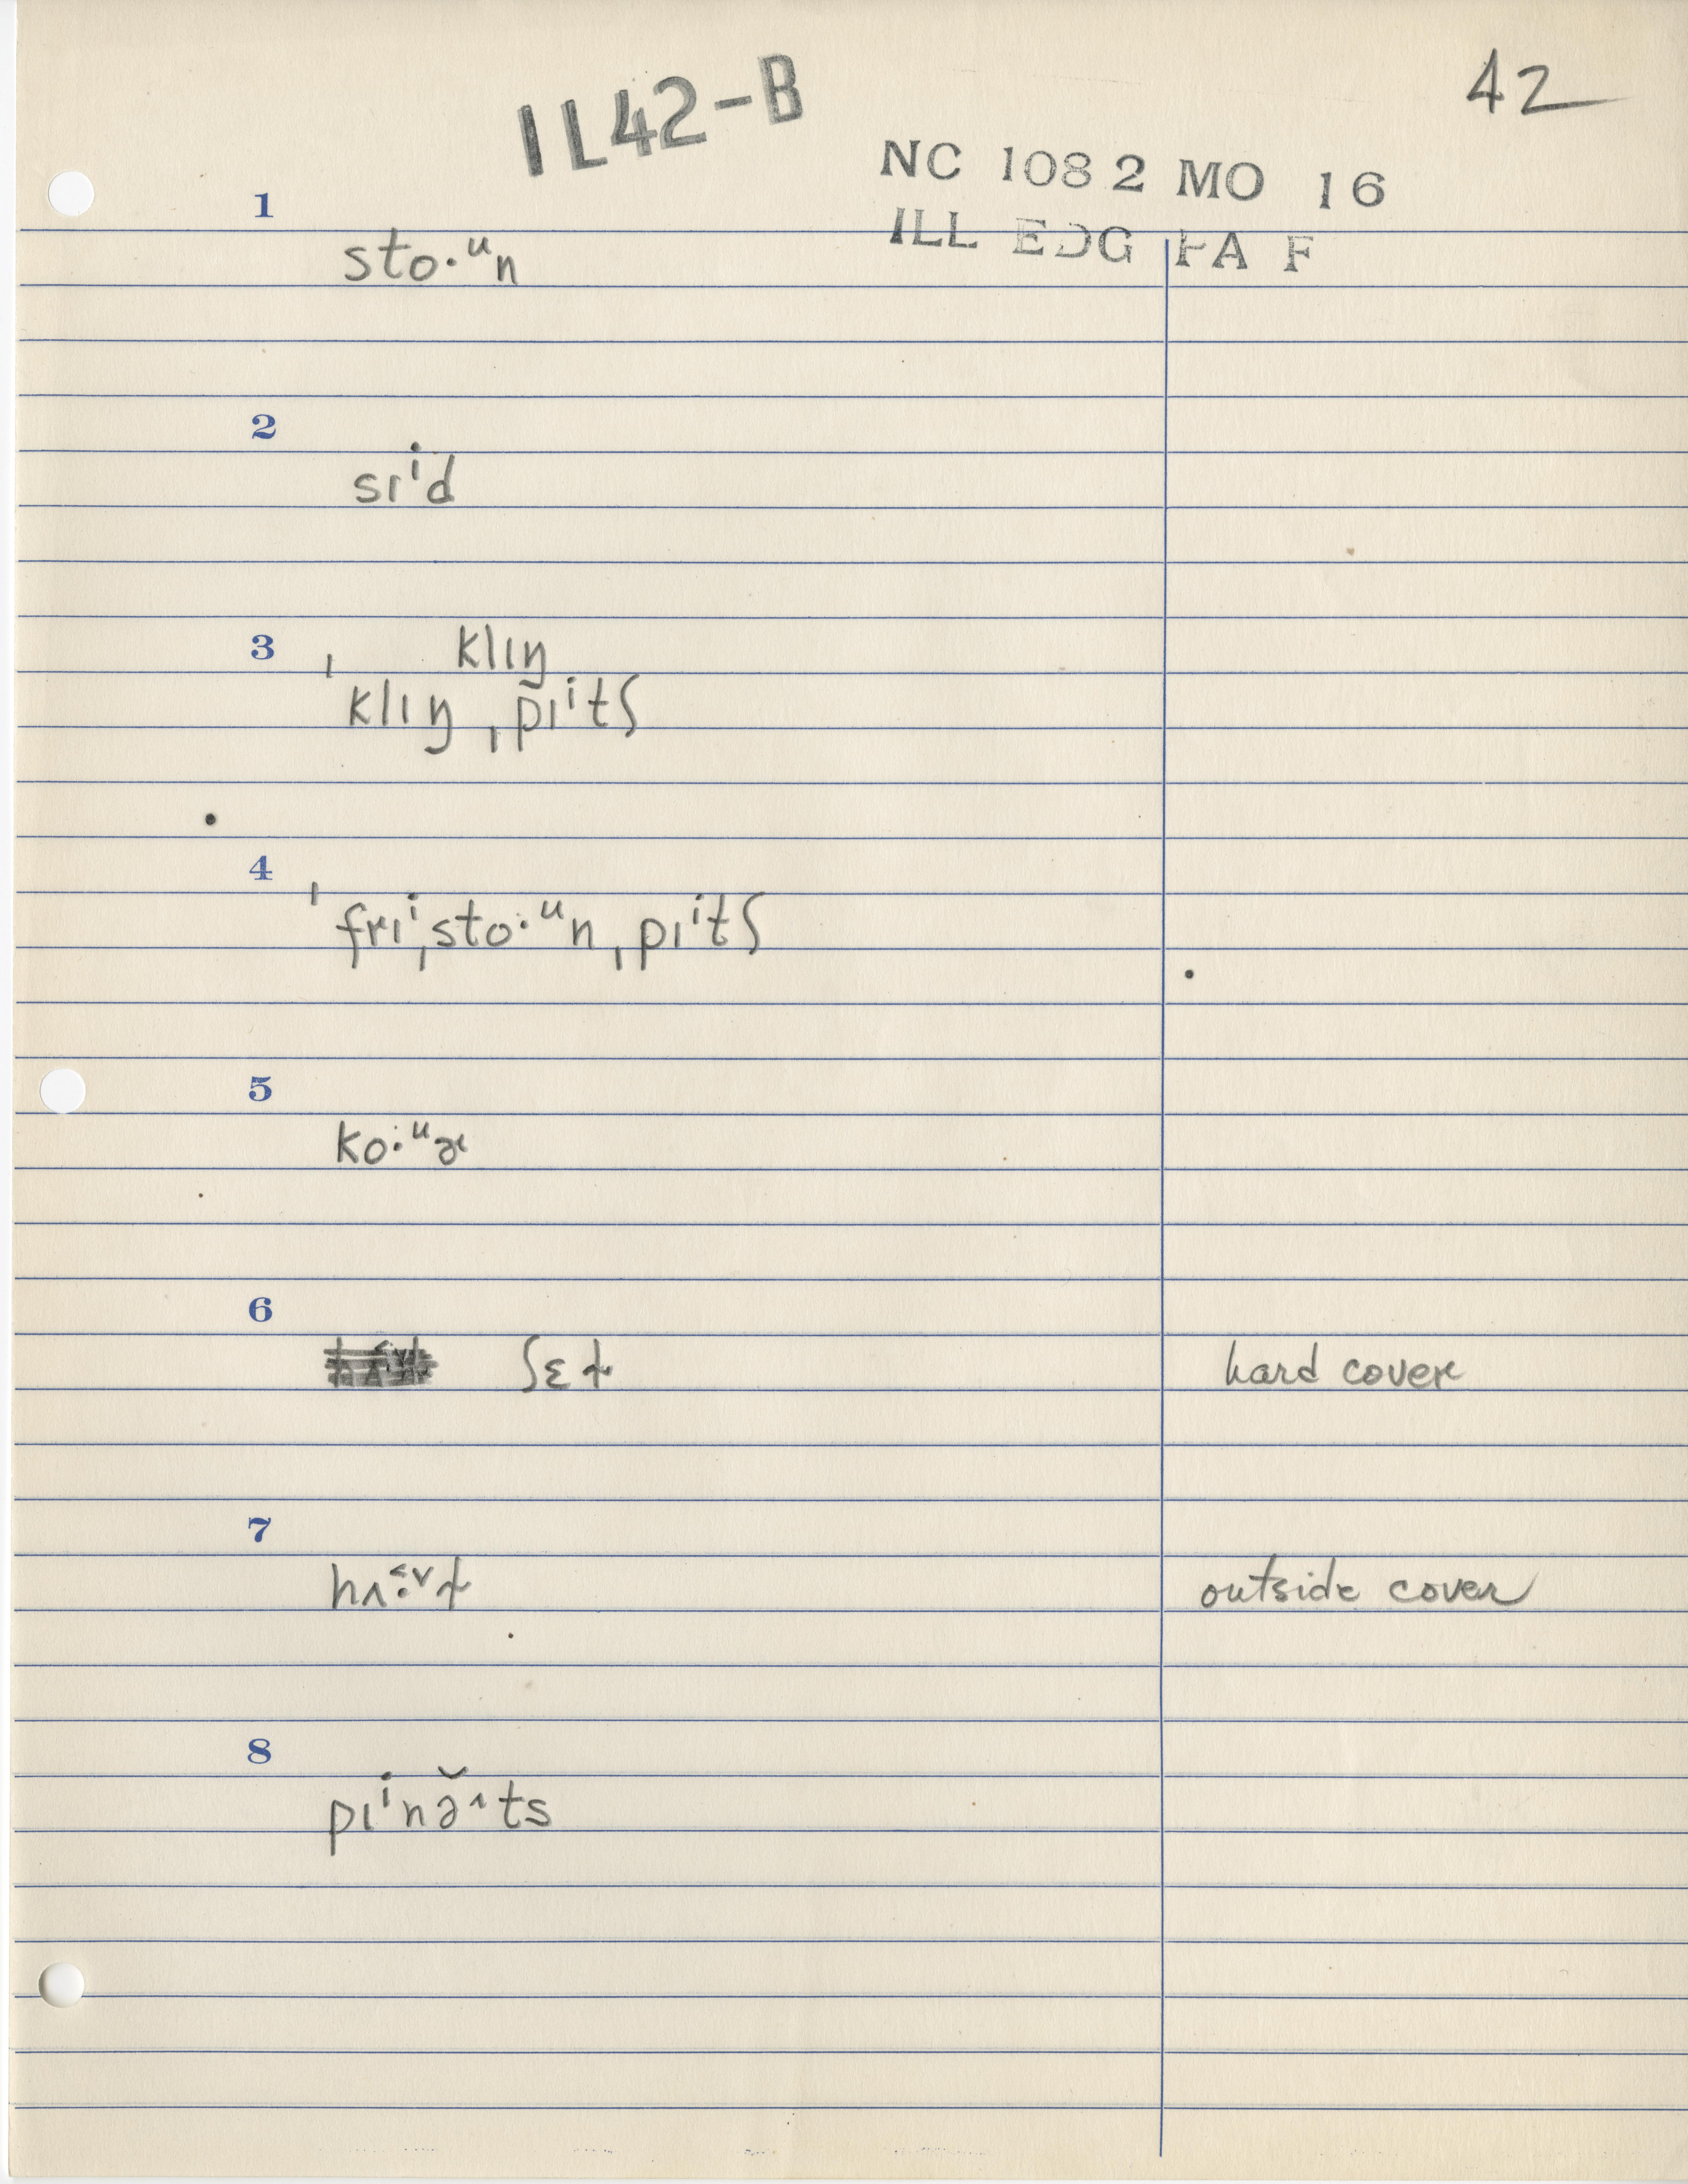 1L42-B
42
NC 1082 MO 16
ILL EDG PA F
1
sto·ᵘn
2
sɪⁱd
3 ˈ klɪŋ
klɪŋ ˌpɪⁱtʃ
4
ˈfrɪⁱˌsto·ᵘnˌpɪⁱtʃ
5
ko·ᵘɚ
6
ʃɛɫ hard cover
7
outside cover
8
pɪⁱnə̆^ts